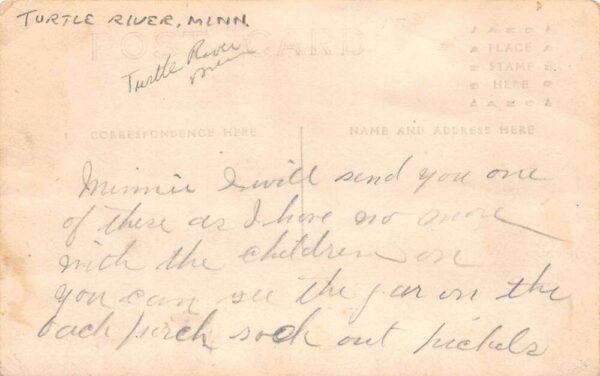 TURTLE RIVER, MINN.
POST CARD
Turtle River
Minn
PLACE
STAMP
HERE
CORRESPONDENCE HERE
NAME AND ADDRESS HERE
Minnie I will send you one
of these as I have no more
with the children on
you can see the jar on the
back porch out pickels